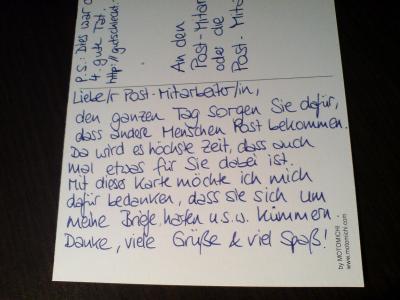 P.S.: Dies war d
4. gute Tat.
An den
Post-Mitar
oder die
Post-Mit
Liebe/r Post-Mitarbeiter/in,
den ganzen Tag sorgen Sie dafür,
dass andere Menschen Post bekommen.
Da wird es höchste Zeit, dass auch
mal etwas für Sie dabei ist.
Mit dieser Karte möchte ich mich
dafür bedanken, dass sie sich um
meine Briefe, Karten u.s.w. kümmern.
Danke, viele Grüße & viel Spaß!
by MOTOMICHI
www.motomichi.com